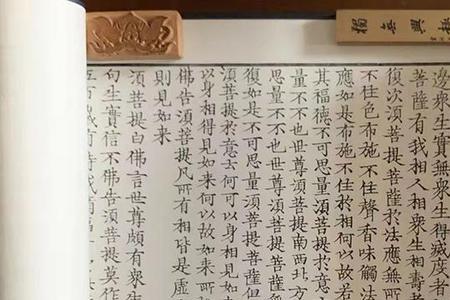 邊眾生實無眾生得滅度者
菩薩有我相人相眾生相壽
復次須菩提菩薩於法應無所
不住色布施不住聲香味觸法
應如是布施不住於相何以故若
其福德不可思量須菩提於意
量不不也世尊須菩提南西北方
思量不不也世尊須菩提菩薩
復如是不可思量須菩提菩薩但
須菩提於意云何可以身相見如
以身相得見如來何以故如來所
佛告須菩提凡所有相皆是虛
則見如來
須菩提白佛言世尊頗有眾生
句生實信不佛告須菩提莫作
五百歲有持戒修福